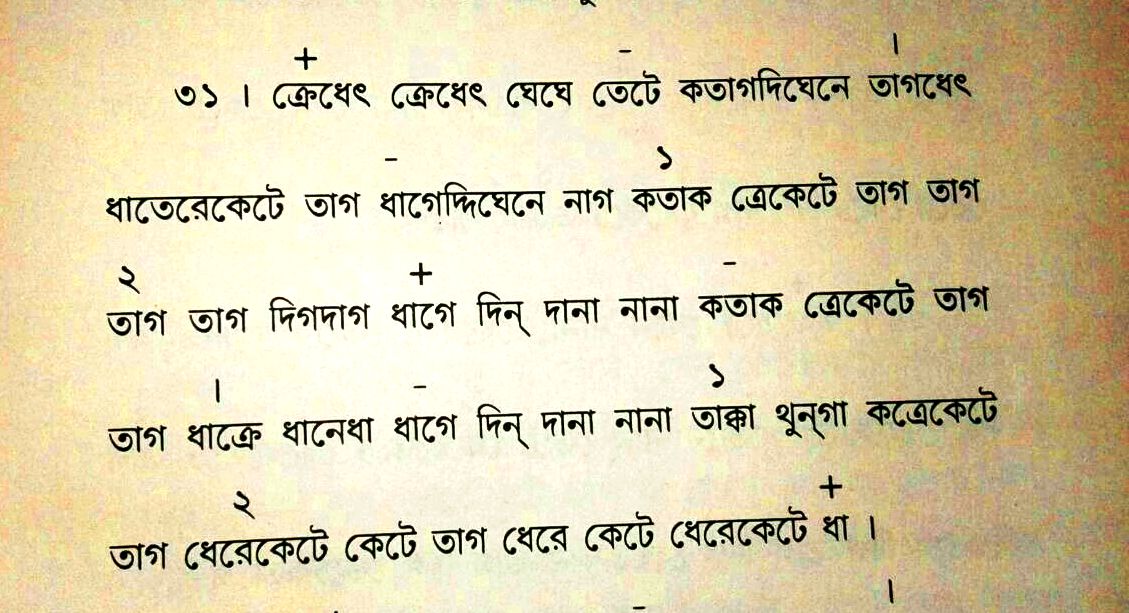 + - ।
৩১ । ক্রেধেৎ ক্রেধেৎ ঘেঘে তেটে কতাগদিঘেনে তাগধেৎ
- ১
ধাতেরেকেটে তাগ ধাগেদ্দিঘেনে নাগ কতাক ত্রেকেটে তাগ তাগ
২ + -
তাগ তাগ দিগদাগ ধাগে দিন্ দানা নানা কতাক ত্রেকেটে তাগ
। - ১
তাগ ধাক্রে ধানেধা ধাগে দিন্ দানা নানা তাক্কা থুন্‌গা কত্রেকেটে
২ +
তাগ ধেরেকেটে কেটে তাগ ধেরে কেটে ধেরেকেটে ধা ।
- ।